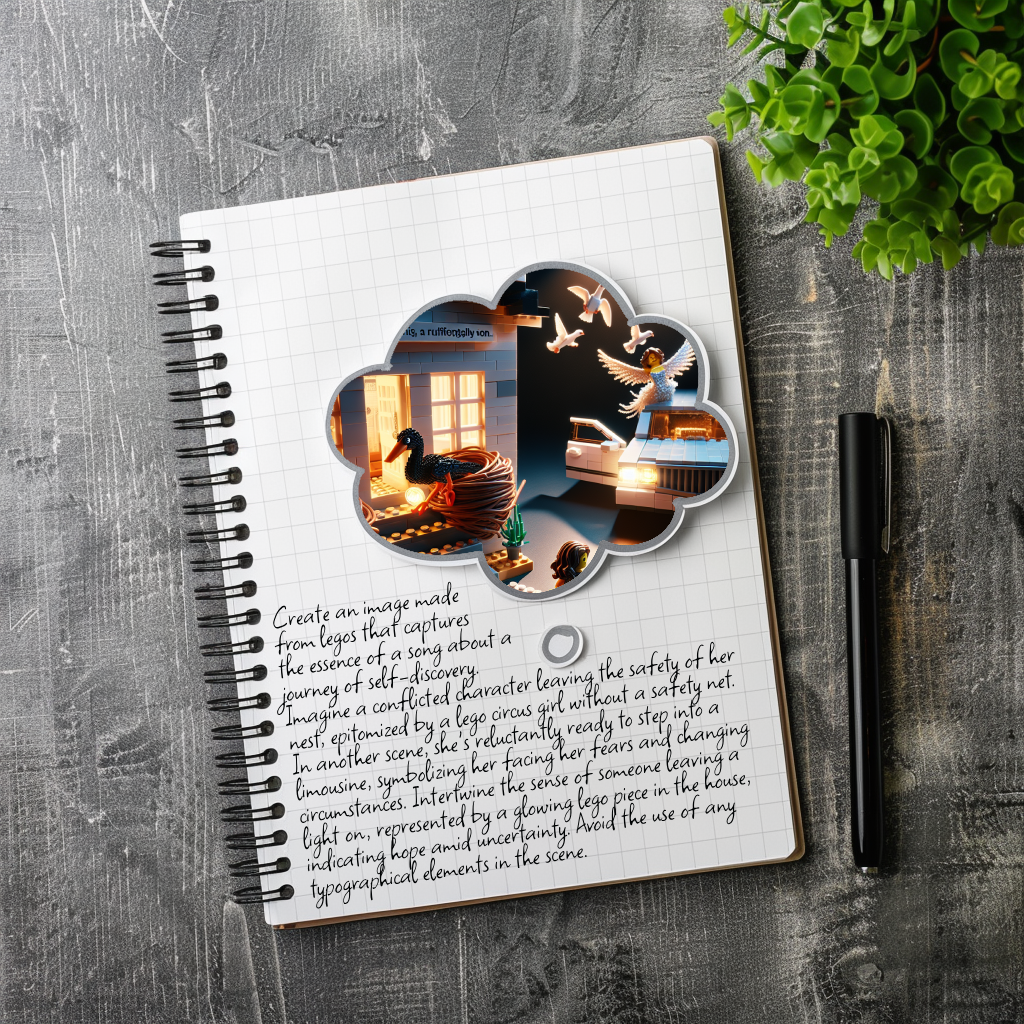 a
Create an image made
from legos that captures
the essence of a song about a
journey of self-discovery.
Imagine a conflicted character leaving the safety of her
nest, epitomized by a lego circus girl without a safety net.
In another scene, she's reluctantly ready to step into a
limousine, symbolizing her facing her fears and changing
circumstances. Intertwine the sense of someone leaving a
light on, represented by a glowing lego piece in the house,
indicating hope amid uncertainty. Avoid the use of any
typographical elements in the scene.